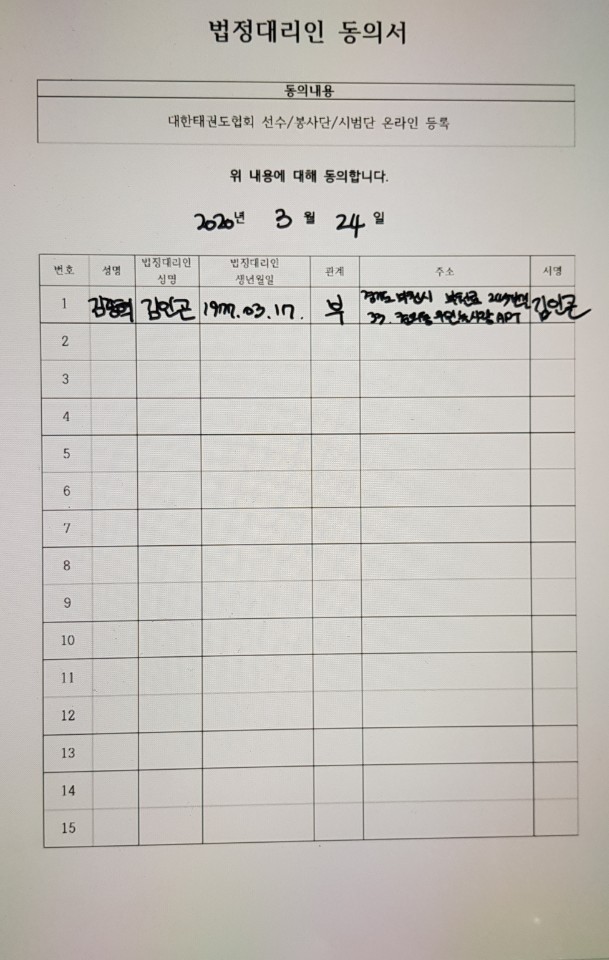 법정대리인 동의서
동의내용
대한태권도협회 선수/봉사단/시범단 온라인 등록
위 내용에 대해 동의합니다.
2020년 3월 24일
번호 성명 법정대리인 성명 법정대리인 생년월일 관계 주소 서명
1 김인곤 1977.03.17. 부 경기도 부천시 김인곤
33. APT
2
3
4
5
6
7
8
9
10
11
12
13
14
15